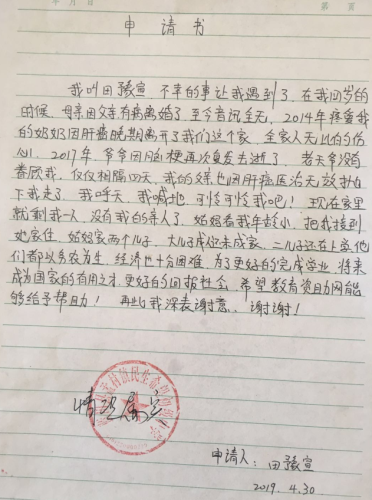 年 月 日 第 页
申请书
我叫田豫宣，不幸的事让我遇到了，在我四岁的
时候，母亲因父亲有病离婚了，至今音讯全无，2014年疼爱我
的奶奶因肝癌晚期离开了我们这个家，全家人无比的伤
心，2017年爷爷因脑梗再次复发去逝了，老天爷没有
眷顾我，仅仅相隔四天，我的父亲也因肝癌医治无效扔
下我走了，我呼天，我喊地，可怜可怜我吧！现在家里
就剩我一人，没有我的亲人了，姑姑看我年龄小，把我接到
她家住，姑姑家两个儿子，大儿子成年未成家，二儿子还在上学，他
们都以务农为生，经济也十分困难，为了更好的完成学业，将来
成为国家的有用之才，更好的回报社会，希望教育资助网能
够给予帮助！再此我深表谢意，谢谢！
情况属实
村信民生态
申请人：田豫宣
2019.4.30